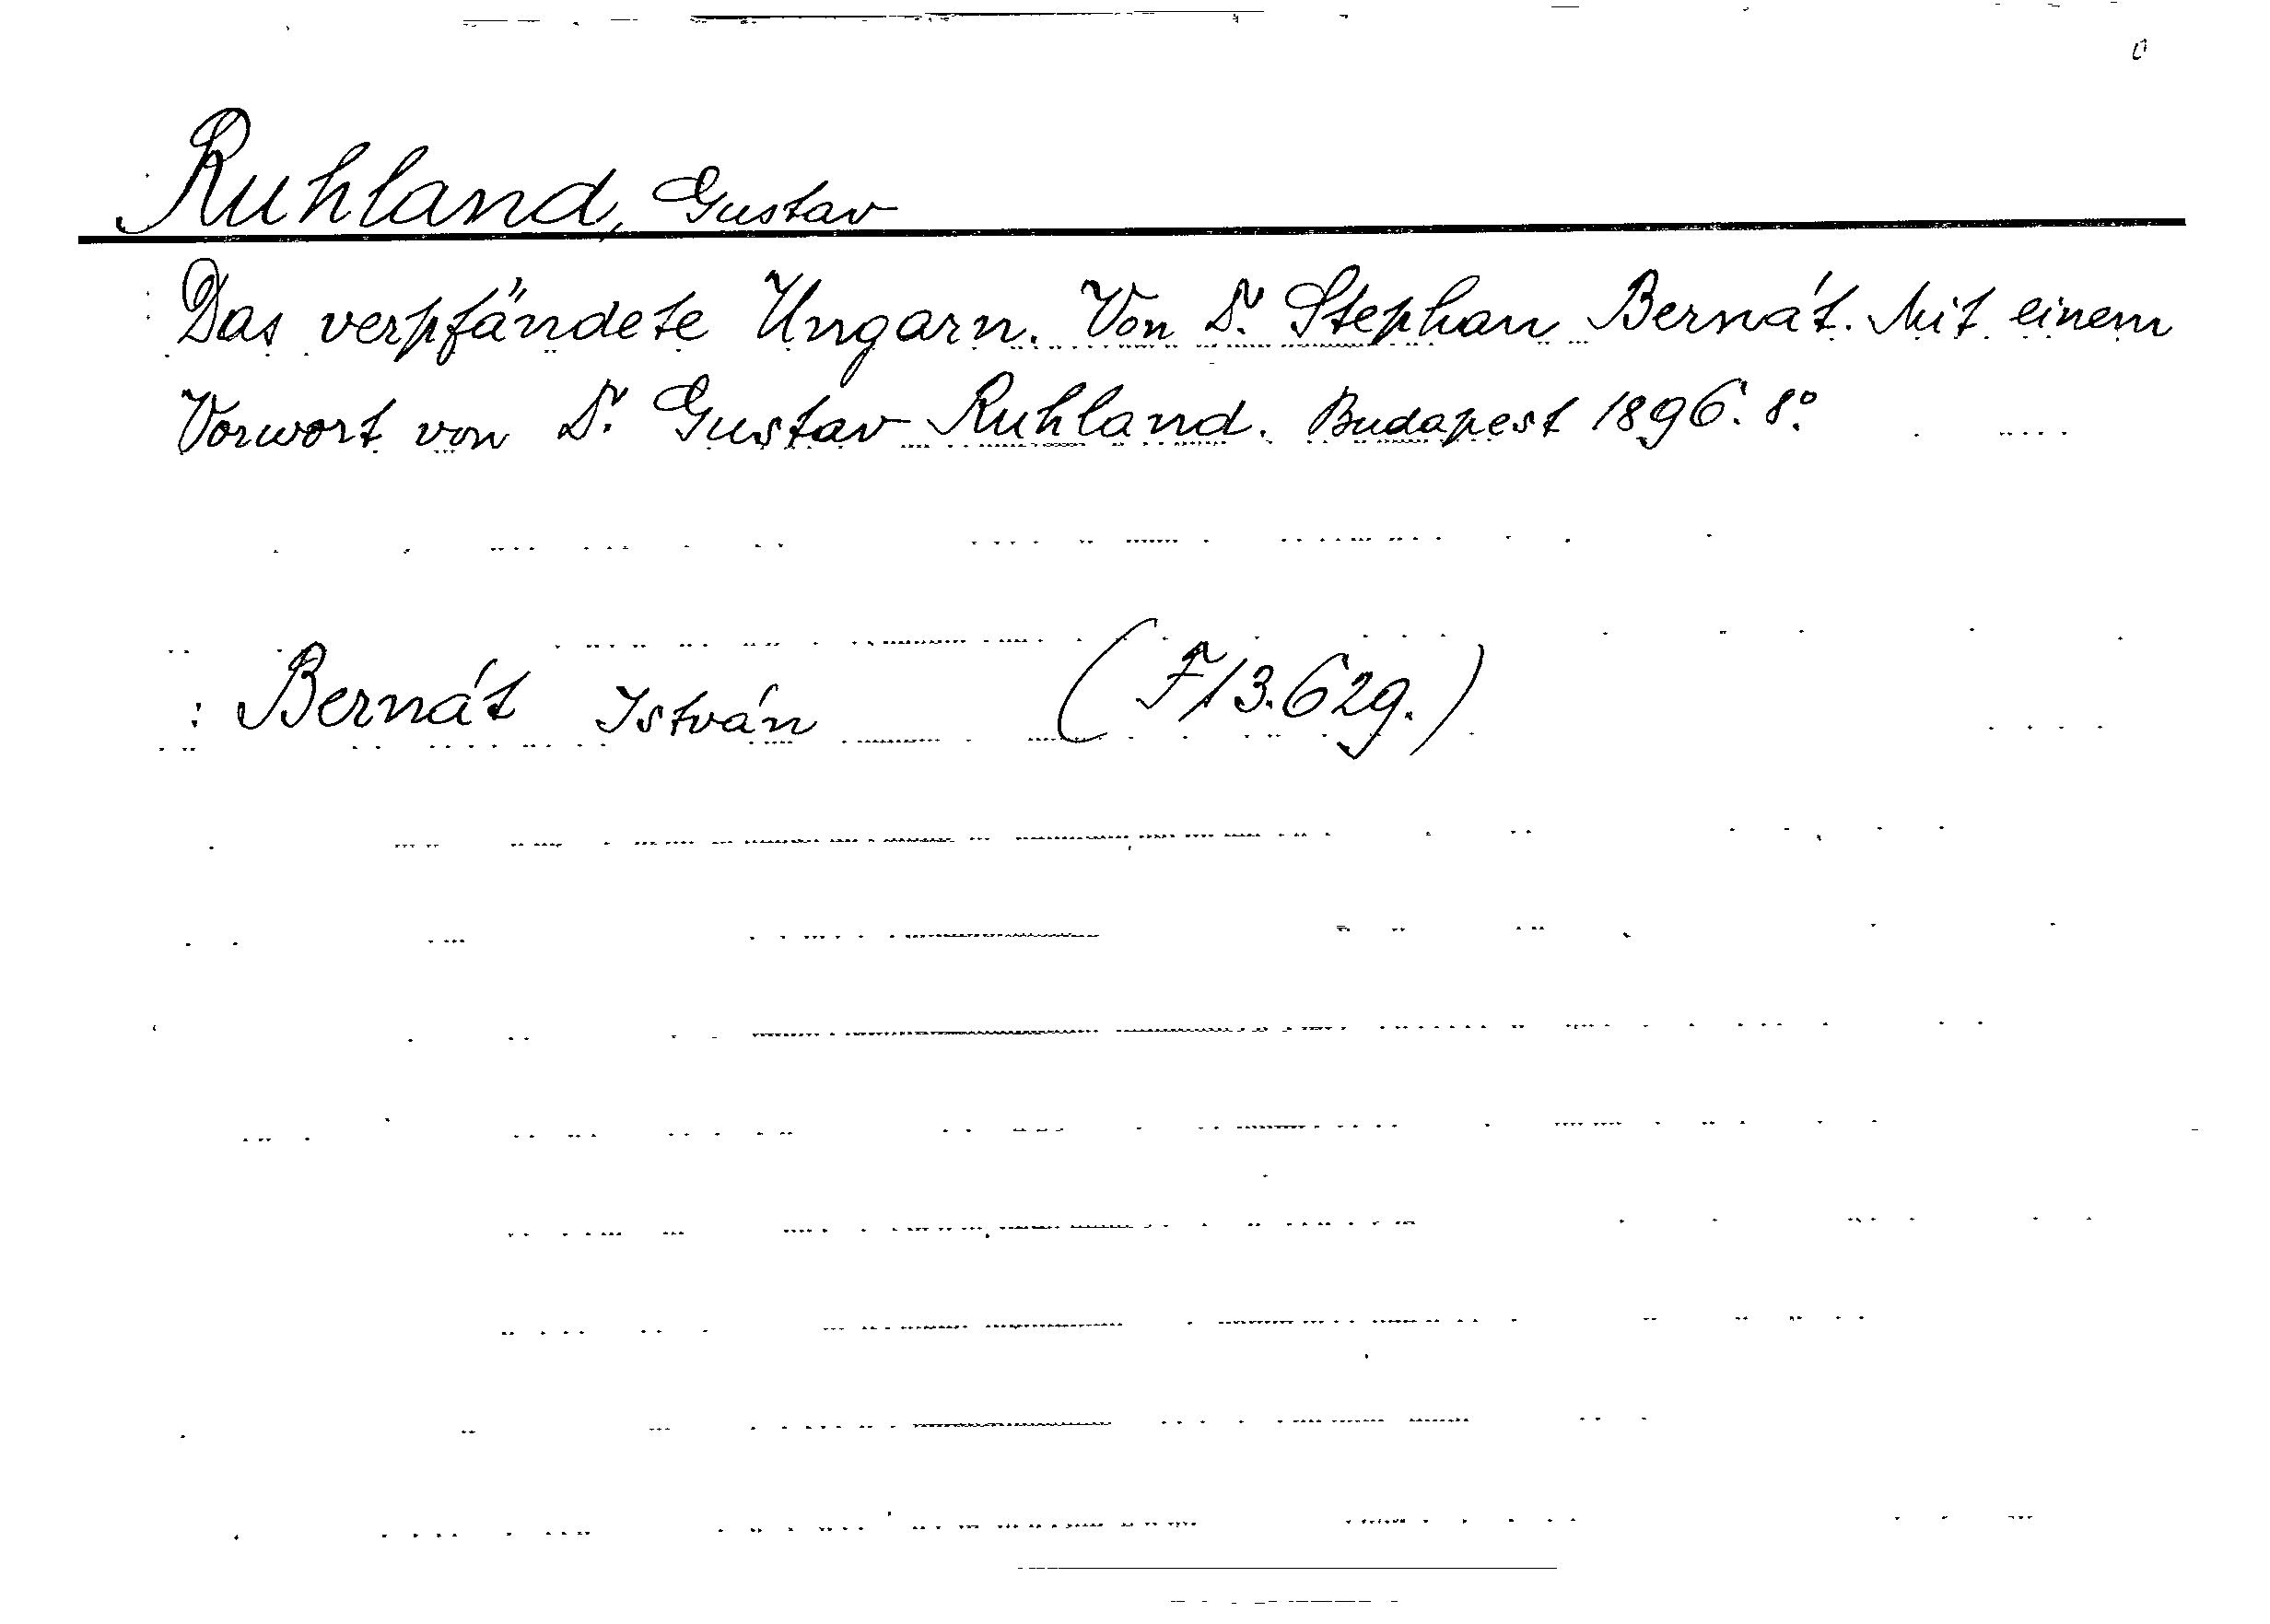 Ruhland, Gustav
Das verpfändete Ungarn. Von Dr. Stephan Bernát. Mit einem
Vorwort von Dr. Gustav Ruhland. Budapest 1896. 8°.
: Bernát István (F/3.629.)